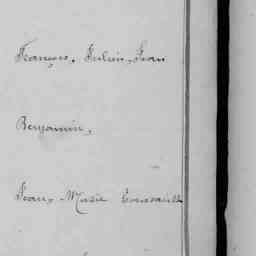 François, Julien, Jean
Benjamin,
Jean, Marie